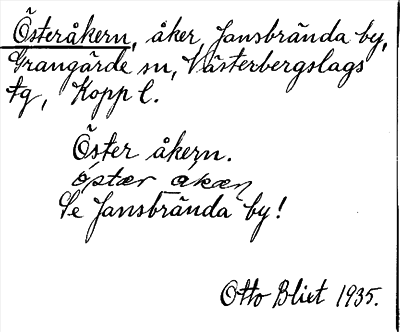 Österåkern, åker Jansbrända by,
Grangärde sn, Västerbergslags
tg, Kopp l.
Öster åkern.
östær åkæṇ
Se Jansbrända by!
Otto Blixt 1935.